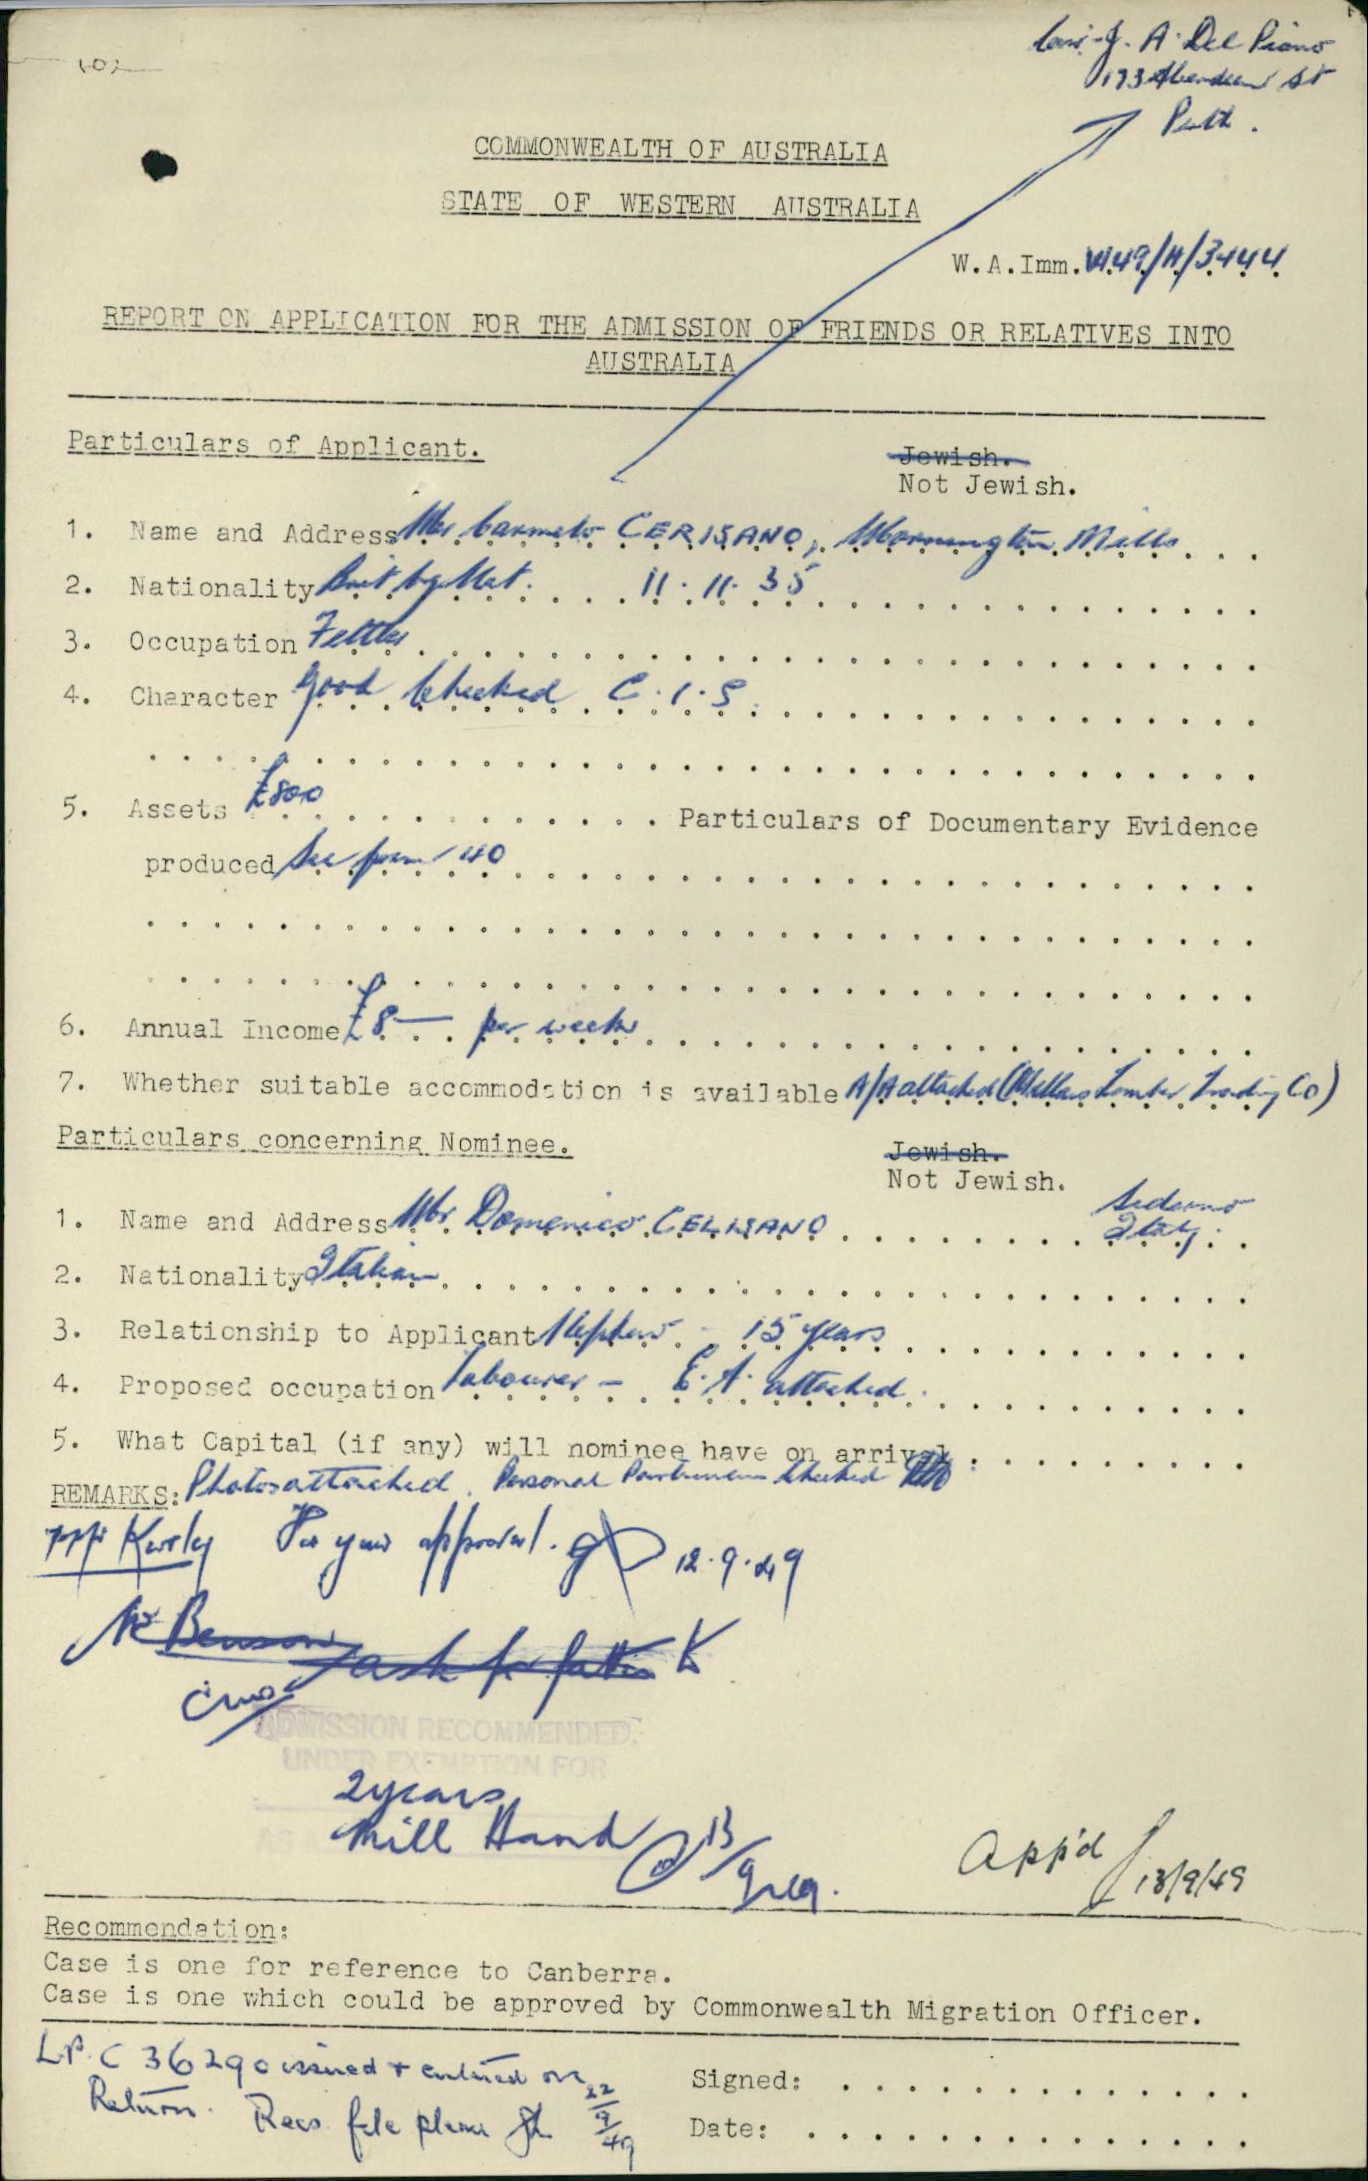 102
J. A. Del Piano
193 Aberdeen St
Perth.
COMMONWEALTH OF AUSTRALIA
STATE OF WESTERN AUSTRALIA
W.A.Imm. W49/4/3444
REPORT ON APPLICATION FOR THE ADMISSION OF FRIENDS OR RELATIVES INTO
AUSTRALIA
Particulars of Applicant.
Jewish.
Not Jewish.
1. Name and Address Mr Carmelo CERISANO, Mornington Mills
2. Nationality Brit by Nat. 11.11.35
3. Occupation Fettler
4. Character Good Checked C.I.S.
5. Assets £800 Particulars of Documentary Evidence
produced See form 40
6. Annual Income £8 — per week
7. Whether suitable accommodation is available A/A attached (Millars Timber Trading Co)
Particulars concerning Nominee.
Jewish.
Not Jewish.
1. Name and Address Mr. Domenico CELISANO Siderno
Italy.
2. Nationality Italian
3. Relationship to Applicant Nephew - 15 years
4. Proposed occupation labourer - E.A. attached.
5. What Capital (if any) will nominee have on arrival
REMARKS: Photos attached. Personal Particulars Checked
For your approval. 12.9.49
Mr Benson
ask for
ADMISSION RECOMMENDED.
UNDER EXEMPTION FOR
2 years
Mill Hand
13/9/49.
App'd 13/9/49
Recommendation:
Case is one for reference to Canberra.
Case is one which could be approved by Commonwealth Migration Officer.
L.P. C 36290 issued + entered on
Return. Recs file please 22/9/49
Signed:
Date: